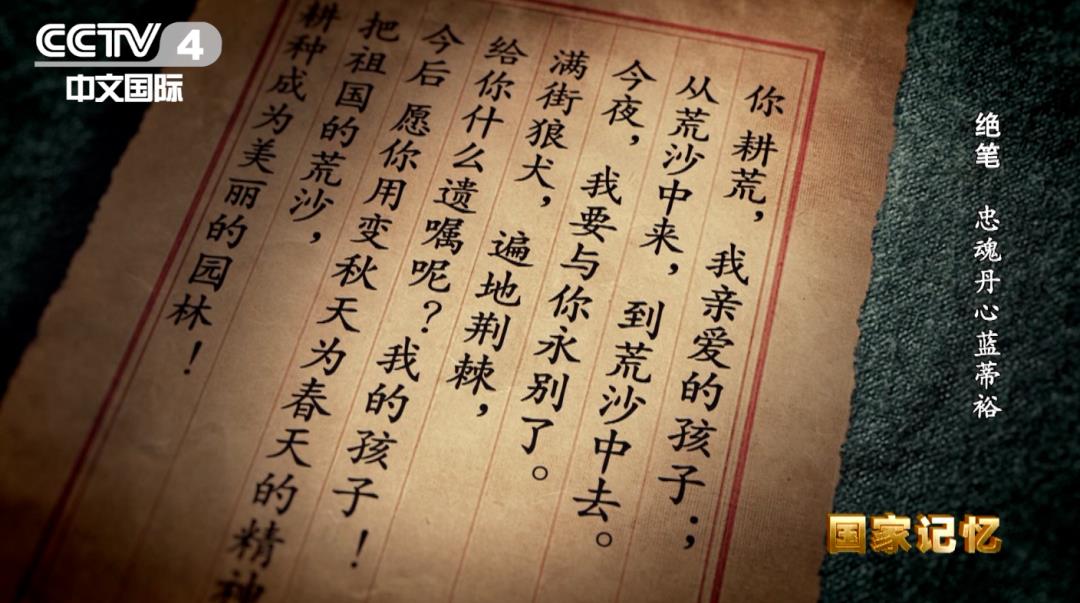 CCTV 4
中文国际
绝笔 忠魂丹心蓝蒂裕
你 耕荒，我亲爱的孩子；
从荒沙中来，到荒沙中去。
今夜，我要与你永别了。
满街狼犬，遍地荆棘，
给你什么遗嘱呢？我的孩子！
今后 愿你用变秋天为春天的精神
把祖国的荒沙，
耕种成为美丽的园林！
国家记忆